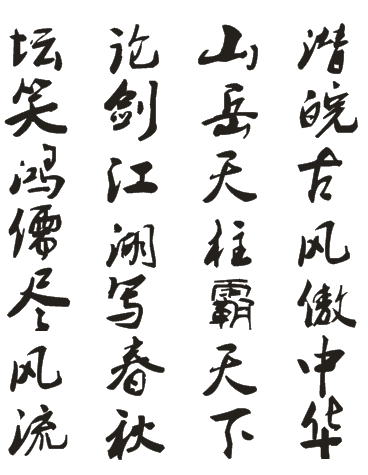 潜皖古风傲中华
山岳天柱霸天下
论剑江湖写春秋
坛笑鸿儒尽风流